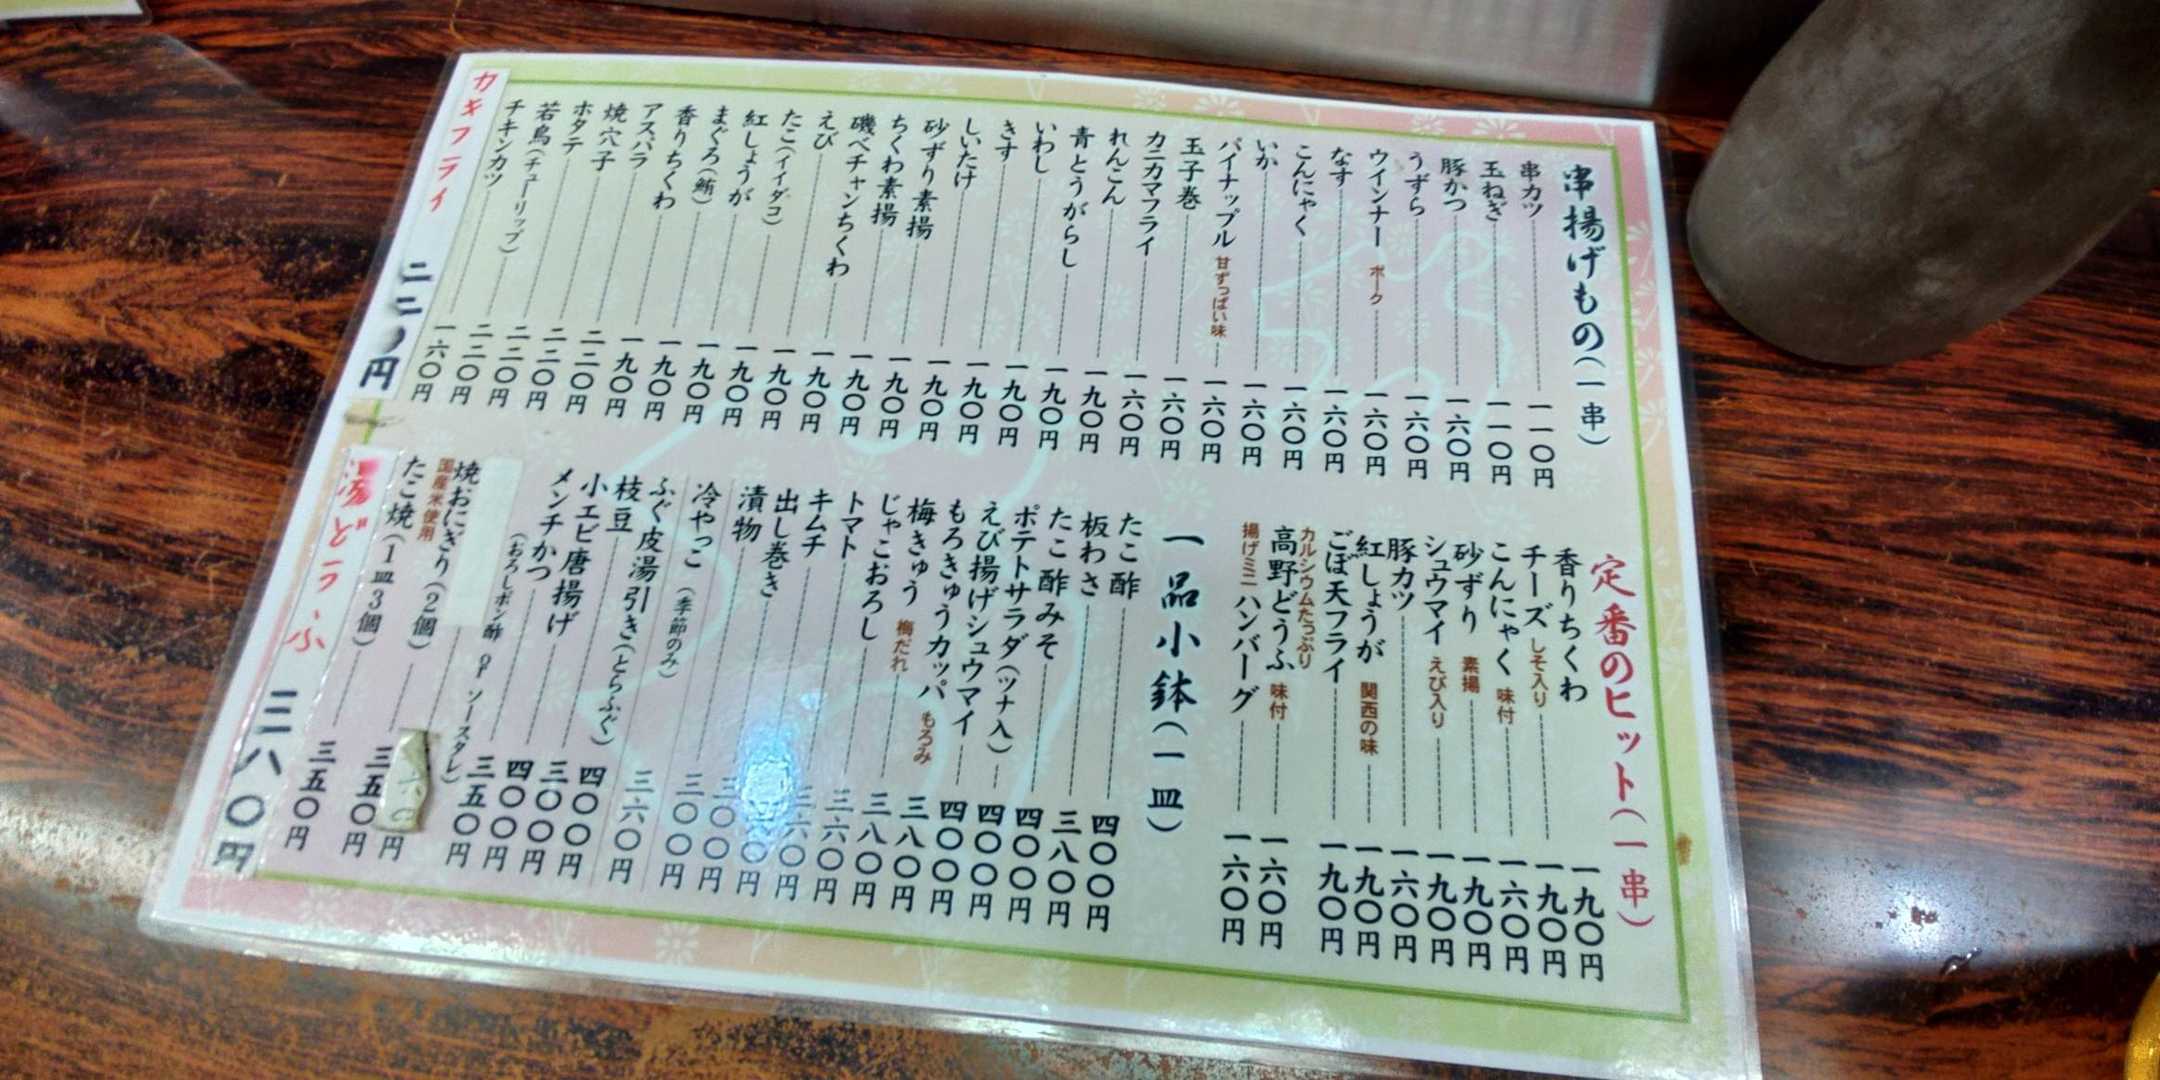 串揚げもの(一串)
串カツ 一一〇円
玉ねぎ 一一〇円
豚かつ 一六〇円
うずら 一六〇円
ウインナー ポーク 一六〇円
なす 一六〇円
こんにゃく 一六〇円
いか 一六〇円
パイナップル 甘ずっぱい味 一六〇円
玉子巻 一六〇円
カニカマフライ 一六〇円
れんこん 一九〇円
青とうがらし 一九〇円
いわし 一九〇円
きす 一九〇円
しいたけ 一九〇円
砂ずり素揚 一九〇円
ちくわ素揚 一九〇円
磯べチャンちくわ 一九〇円
えび 一九〇円
たこ(イイダコ) 一九〇円
紅しょうが 一九〇円
まぐろ(鮪) 一九〇円
香りちくわ 一九〇円
アスパラ 二二〇円
焼穴子 二二〇円
ホタテ 二二〇円
若鳥(チューリップ) 二二〇円
チキンカツ 一六〇円
カキフライ 二二〇円
定番のヒット(一串)
香りちくわ 一九〇円
チーズ しそ入り 一九〇円
こんにゃく 味付 一六〇円
砂ずり 素揚 一九〇円
シュウマイ えび入り 一九〇円
豚カツ 一六〇円
紅しょうが 関西の味 一九〇円
ごぼ天フライ 一九〇円
カルシウムたっぷり
高野どうふ 味付 一六〇円
揚げミニハンバーグ 一六〇円
一品小鉢(一皿)
たこ酢 四〇〇円
板わさ 三八〇円
たこ酢みそ 四〇〇円
ポテトサラダ(ツナ入) 四〇〇円
えび揚げシュウマイ 四〇〇円
もろきゅうカッパ もろみ 三八〇円
梅きゅう 梅だれ 三八〇円
じゃこおろし 三六〇円
トマト 三六〇円
キムチ 〇円
出し巻き 三〇〇円
漬物 三〇〇円
冷やっこ (季節のみ) 三六〇円
ふぐ皮湯引き(とらふぐ) 四〇〇円
枝豆 三〇〇円
小エビ唐揚げ 四〇〇円
メンチかつ 三五〇円
(おろしポン酢 or ソースタレ)
焼おにぎり(2個) 三五〇円
国産米使用
たこ焼(1皿3個) 三五〇円
湯どうふ 三八〇円